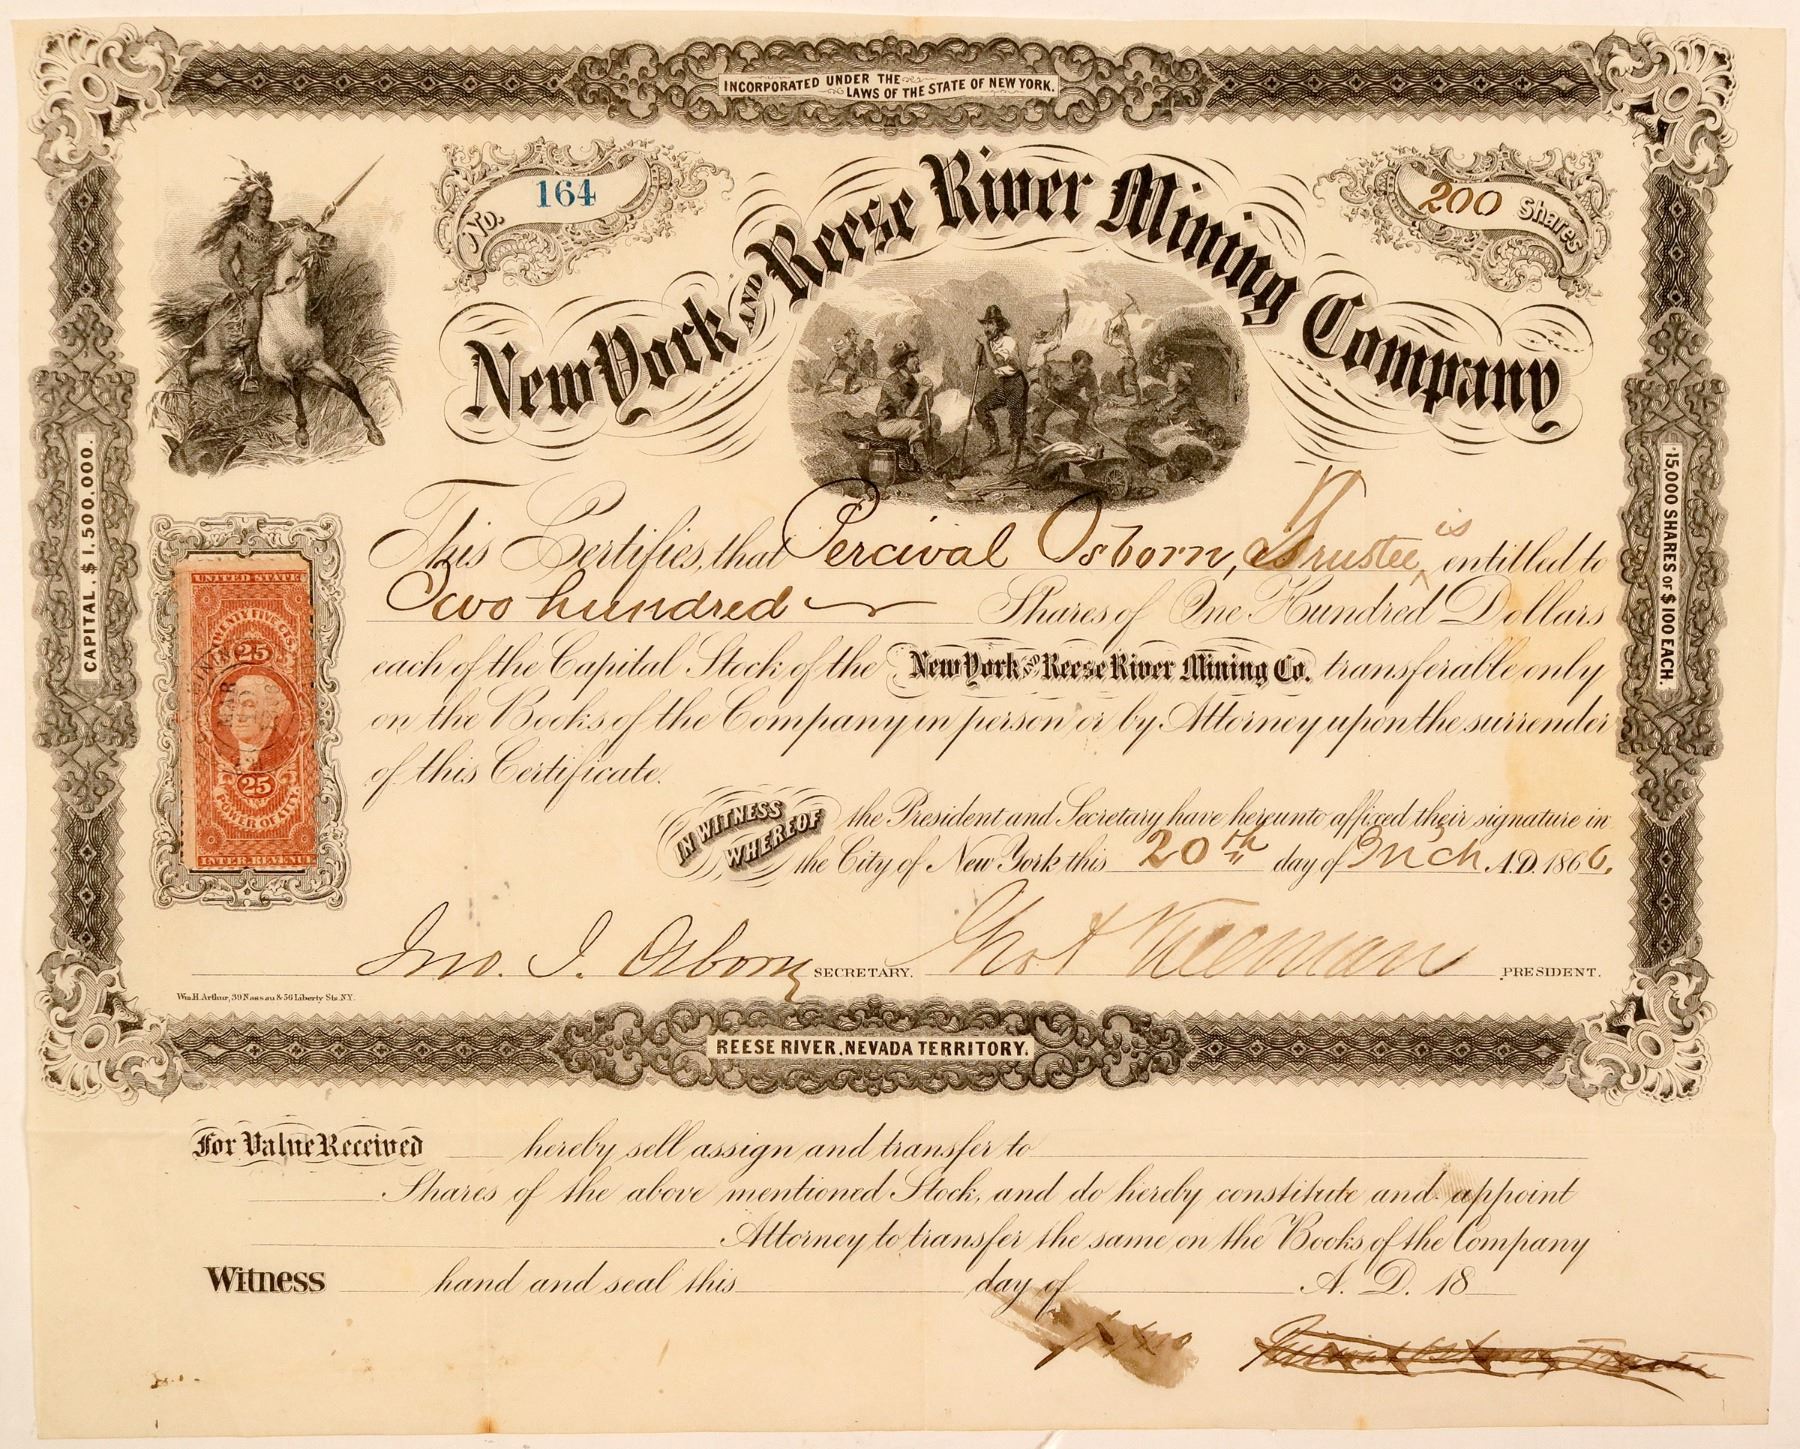 INCORPORATED UNDER THE
LAWS OF THE STATE OF NEW YORK.
No. 164
200 Shares
New York AND Reese River Mining Company
CAPITAL, $1,500,000.
15,000 SHARES OF $100 EACH.
This Certifies, that Percival Osborn, Trustee, is entitled to
Two hundred Shares of One Hundred Dollars
each of the Capital Stock of the New York AND Reese River Mining Co. transferable only
on the Books of the Company in person or by Attorney upon the surrender
of this Certificate.
UNITED STATES
TWENTY FIVE CTS.
25
25
POWER OF ATT'Y.
INTER. REVENUE
IN WITNESS WHEREOF the President and Secretary have hereunto affixed their signature in
the City of New York this 20th day of Mch A.D. 1866.
Jno. I. Osborn SECRETARY. PRESIDENT.
Wm. H. Arthur, 39 Nassau & 56 Liberty Sts. N.Y.
REESE RIVER, NEVADA TERRITORY.
For Value Received hereby sell assign and transfer to
Shares of the above mentioned Stock, and do hereby constitute and appoint
Attorney to transfer the same on the Books of the Company
Witness hand and seal this day of A. D. 18